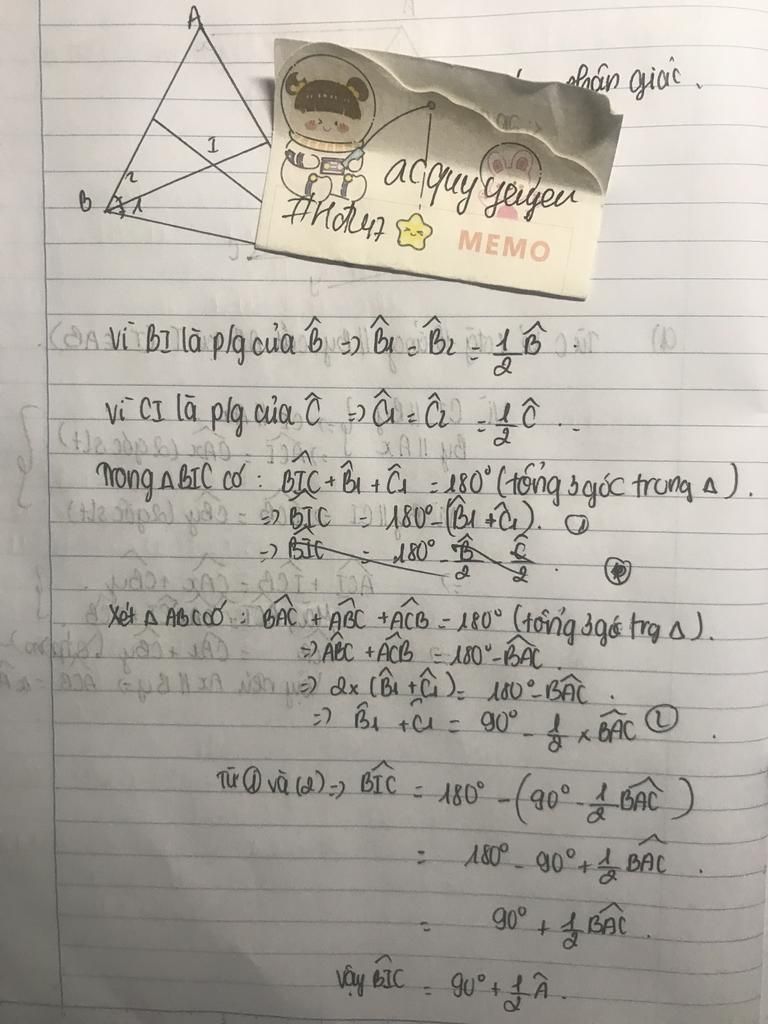 A
phân giác.
I
2
B 1
acquyyeuyeu
#Hoi247
MEMO
Vì BI là p/g của B̂ => B̂1 = B̂2 = 1/2 B̂
Vì CI là p/g của Ĉ => Ĉ1 = Ĉ2 = 1/2 Ĉ
Trong △BIC có : BIC + B̂1 + Ĉ1 = 180° (tổng 3 góc trong △).
=> BIC = 180° - (B̂1 + Ĉ1). ①
=> BIC = 180° - B̂/2 - Ĉ/2.
Xét △ABC có : BAC + ABC + ACB = 180° (tổng 3 gó trg △).
=> ABC + ACB = 180° - BAC.
=> 2x (B̂1 + Ĉ1) = 180° - BAC.
=> B̂1 + Ĉ1 = 90° - 1/2 x BAC ②.
Từ ① và (2) => BIC = 180° - (90° - 1/2 BAC)
= 180° - 90° + 1/2 BAC.
= 90° + 1/2 BAC.
Vậy BIC = 90° + 1/2 Â.